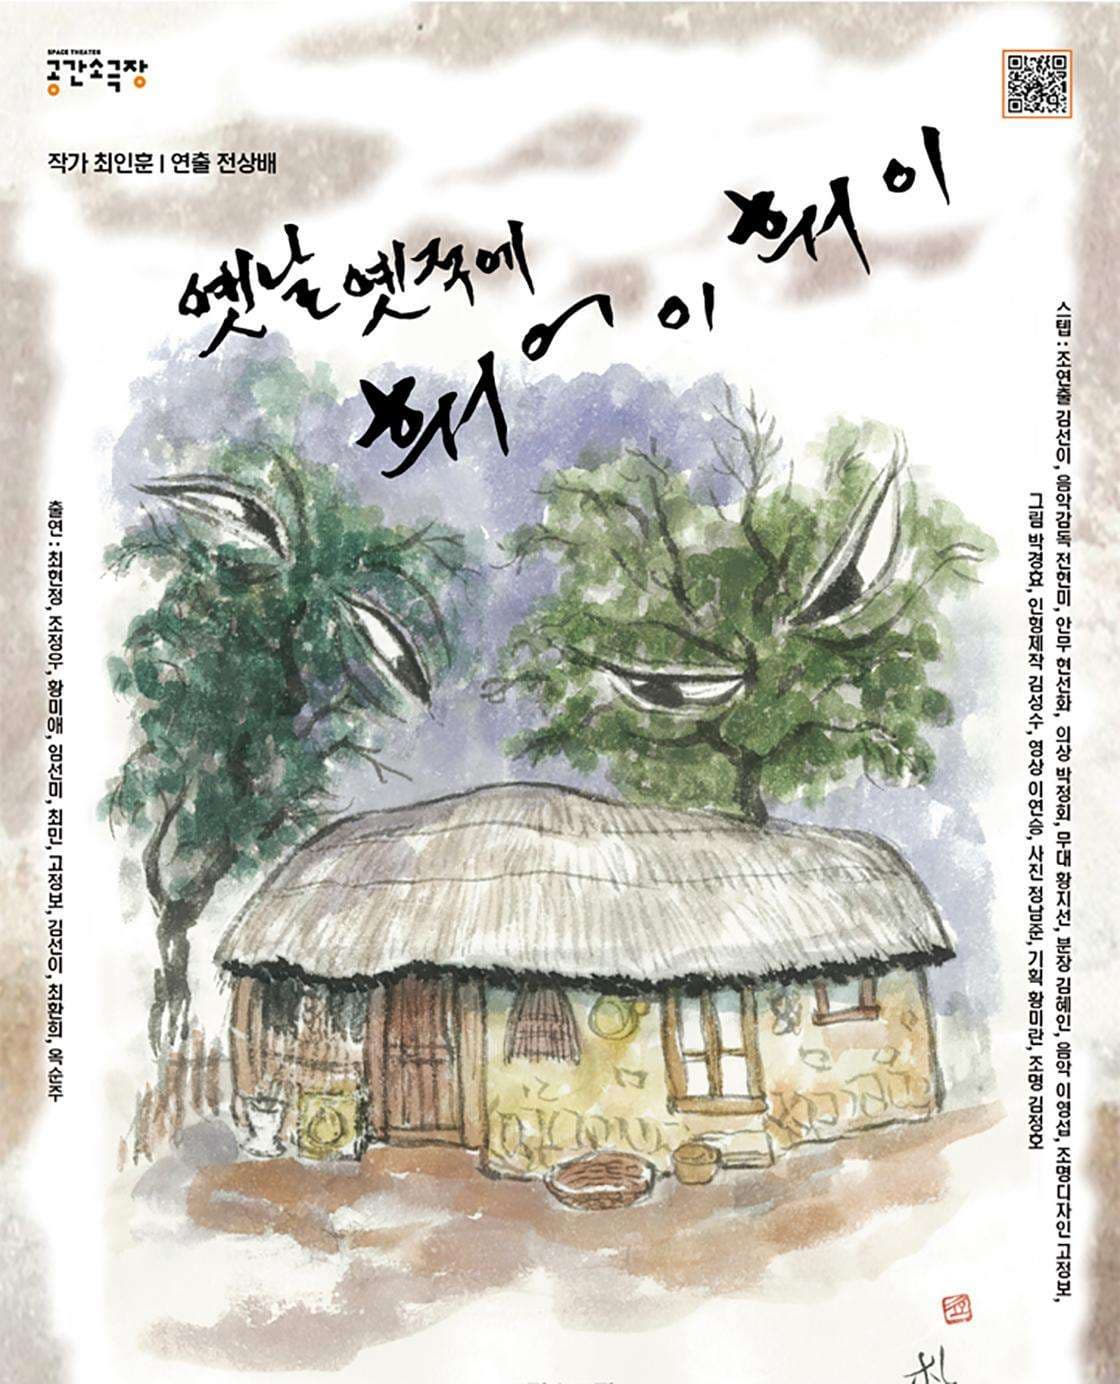 SPACE THEATER
공간소극장
작가 최인훈 | 연출 전상배
옛날 옛적에
훠어이
훠이
출연 : 최현정, 조정우, 황미애, 임선미, 최민, 고정보, 김선이, 최환희, 옥순주
스텝 : 조연출 김선이, 음악감독 전현미, 안무 현선화, 의상 박정희, 무대 황지선, 분장 김혜인, 음악 이형섭, 조명디자인 고정보,
그림 박경효, 인형제작 김성수, 영상 이연승, 사진 정남준, 기획 황미란, 조명 김정호